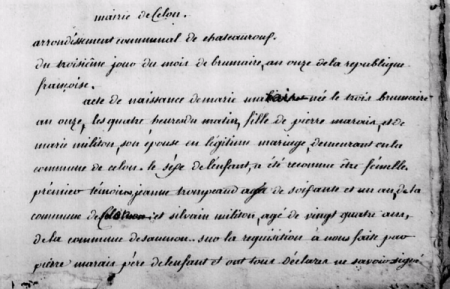 mairie de Celon.
arrondissement communal de chateauroux.
du troisième jour du mois de brumaire, an onze de la republique
françoise.
acte de naissance de marie marais né le trois brumaire
an onze, les quatre heures du matin, fille de pierre marais, et de
marie militon son épouse en légitime mariage, demeurant en la
commune de celon. le sexe de l'enfant, a été reconnu être fémelle.
prémier témoins, jeanne agé de soisante et un an, de la
commune de et silvain militon, agé de vingt quatre ans,
de la commune de sur la requisition à nous faite par
pierre marais père de l'enfant et ont tous déclarés ne savoir signé